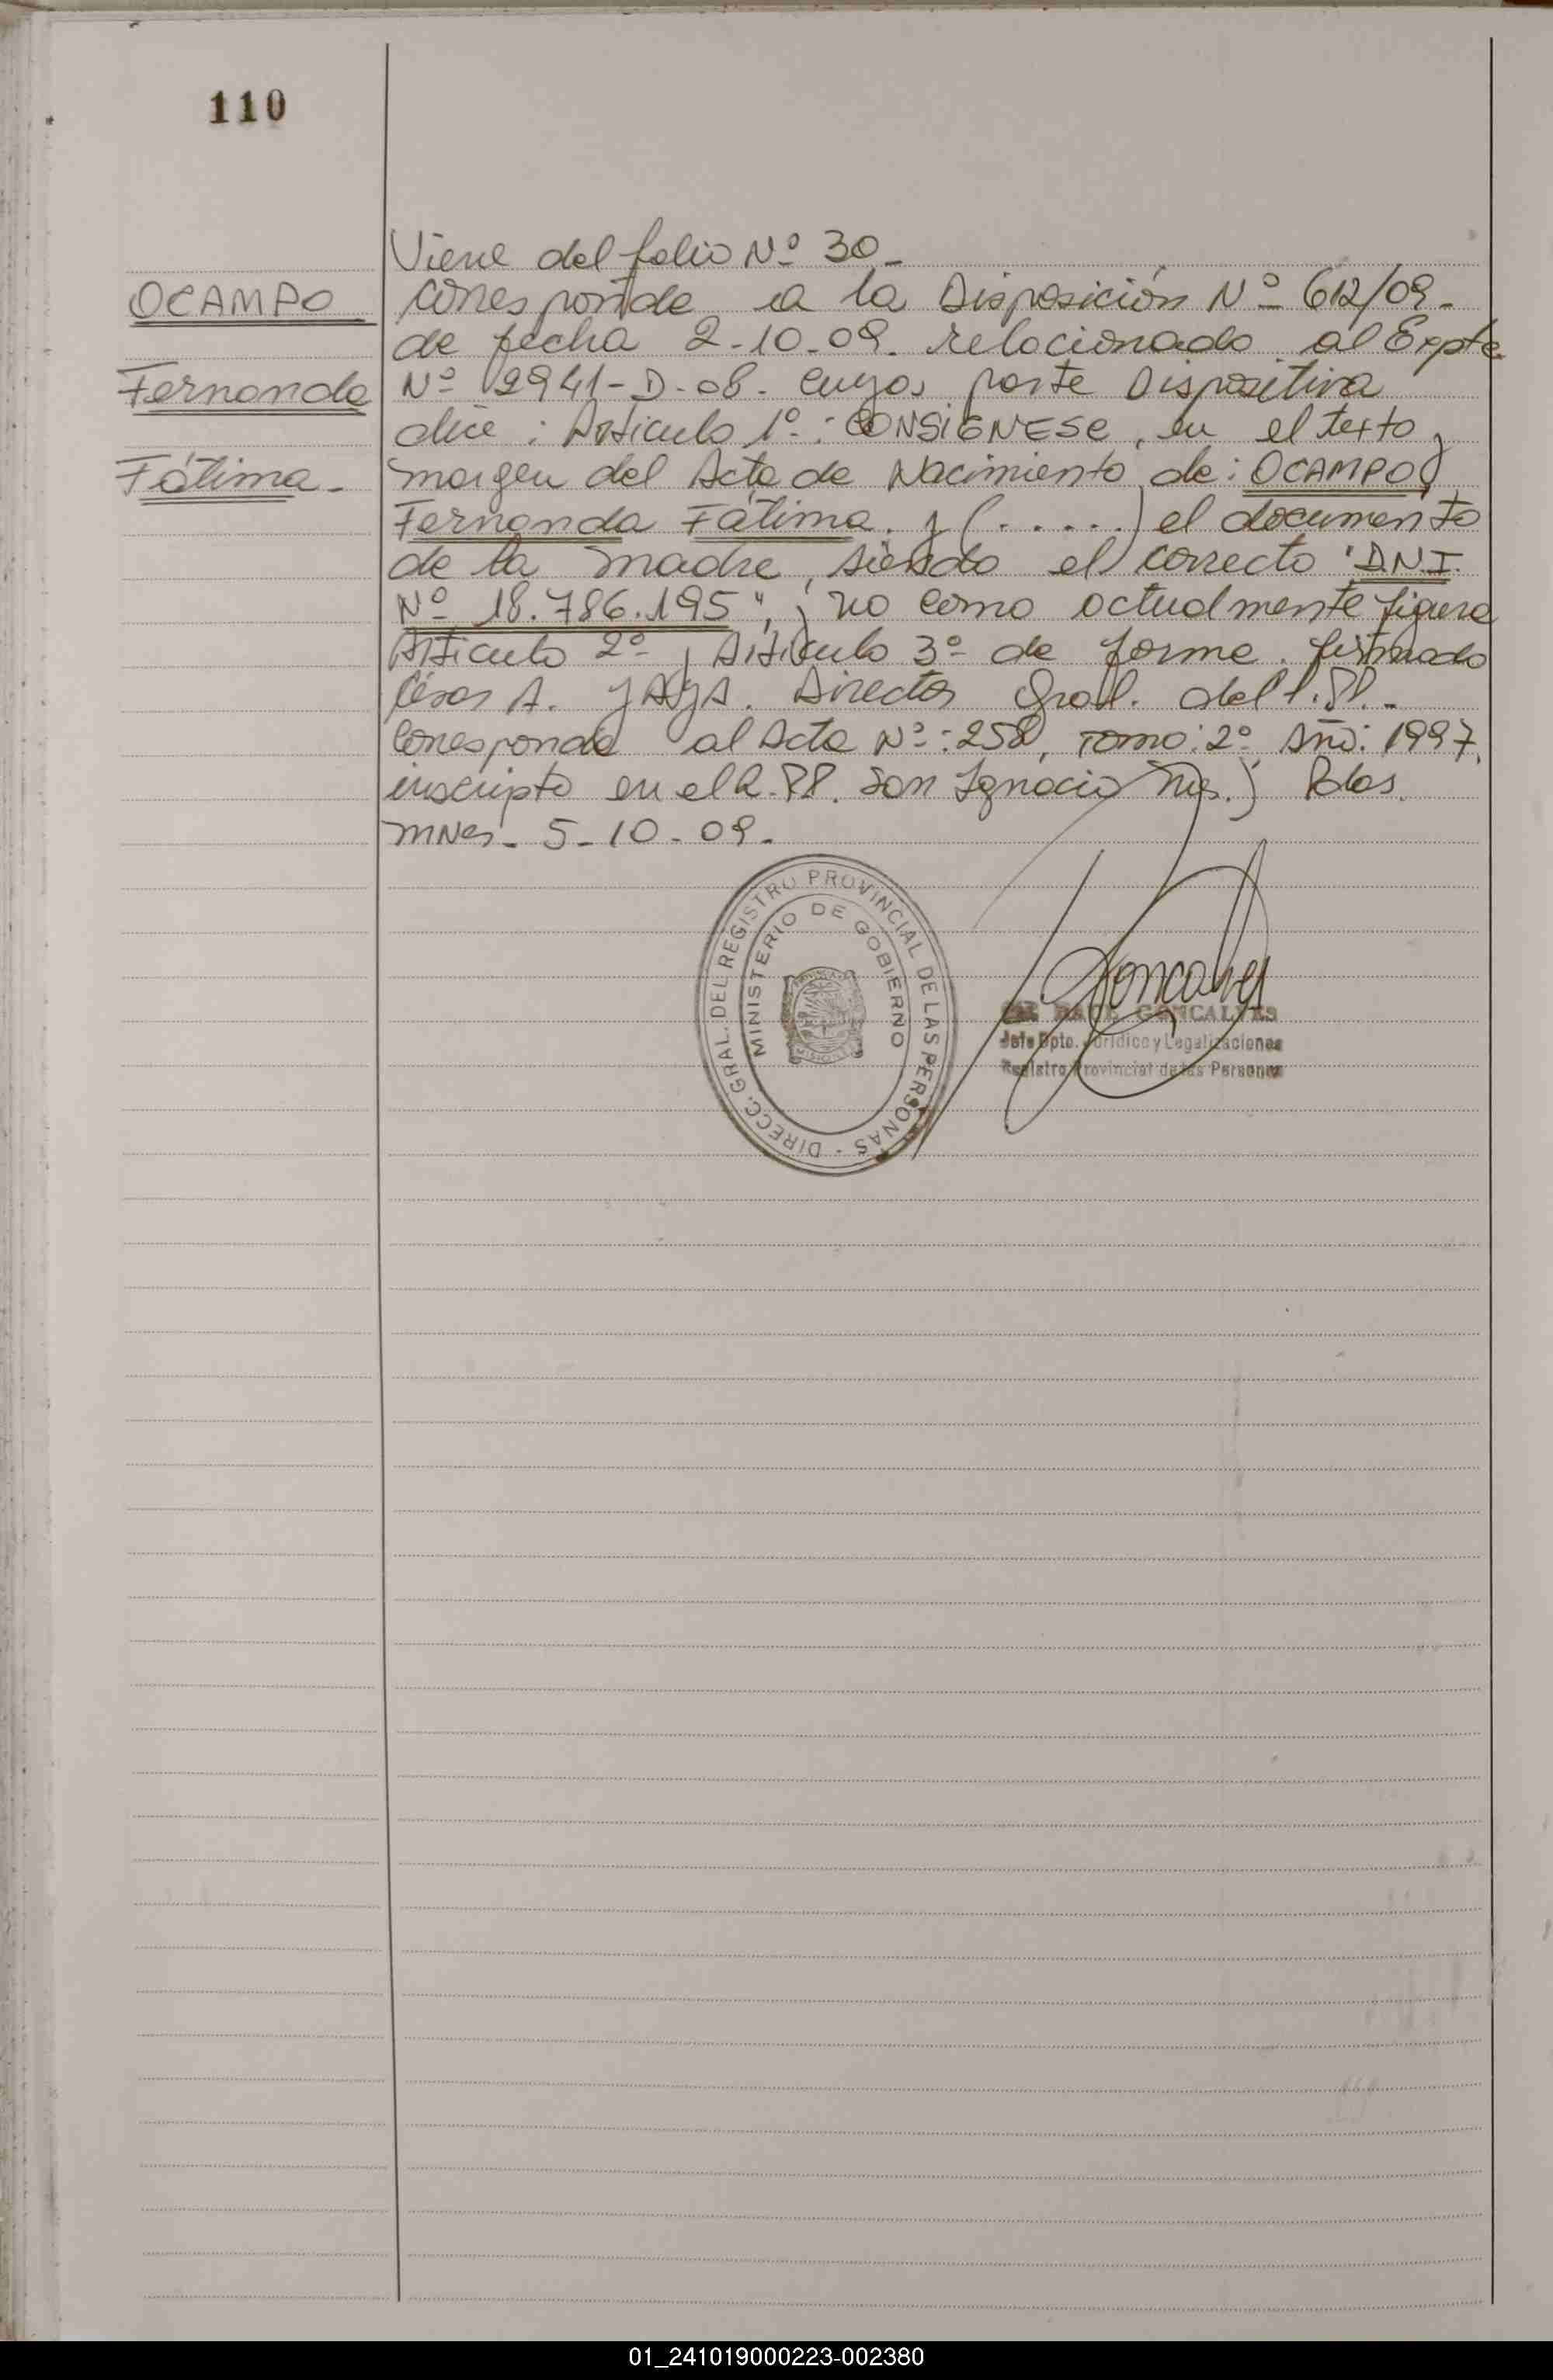 110
OCAMPO
Fernanda
Fátima.-
Viene del folio Nº 30.-
Corresponde a la Disposición Nº 612/09.-
de fecha 2-10-09. relacionado al Expte
Nº 2941-D-08. cuya parte Dispositiva
dice: Artículo 1º: CONSIGNESE, en el texto y
margen del Acta de Nacimiento de: OCAMPO,
Fernanda Fátima. y (.....) el documento
de la madre, siendo el correcto "D.N.I.
Nº 18.786.195", y no como actualmente figura
Artículo 2º y Artículo 3º de forma. firmado
César A. YAYA. Director Gral. del R.P.P.-
Corresponde al Acta Nº: 258, Tomo: 2º Año: 1997,
inscripto en el R.P.P. San Ignacio Mnes.) Pdas.
Mnes.- 5-10-09.-
DIRECC. GRAL. DEL REGISTRO PROVINCIAL DE LAS PERSONAS -
MINISTERIO DE GOBIERNO
MISIONES
Goncalves
GONCALVES
Jefe Dpto. Jurídico y Legalizaciones
Registro Provincial de las Personas
01_241019000223-002380